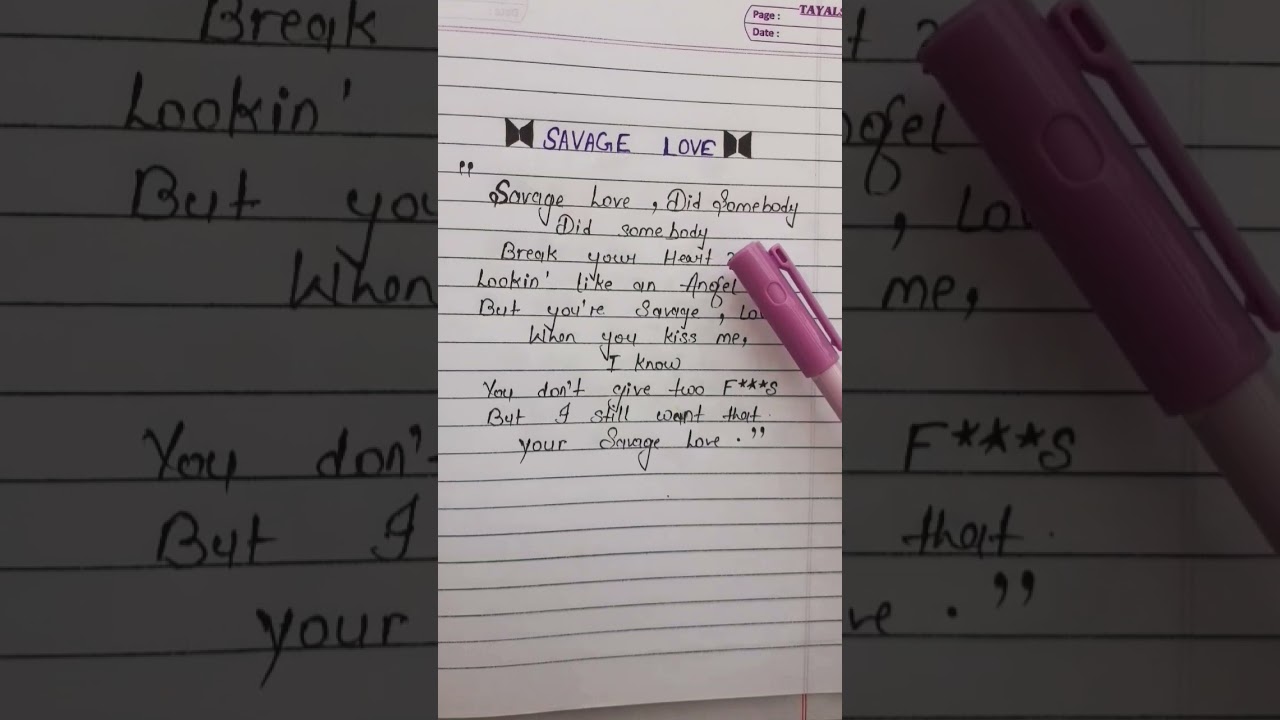 Page :
TAYALS
Date :
SAVAGE LOVE
"
Savage Love , Did Somebody
Did somebody
Break your Heart ?
Lookin' like an Angel
But you're Savage , Lo
When you kiss me,
I know
You don't give two F***s
But I still want that.
your Savage Love ."